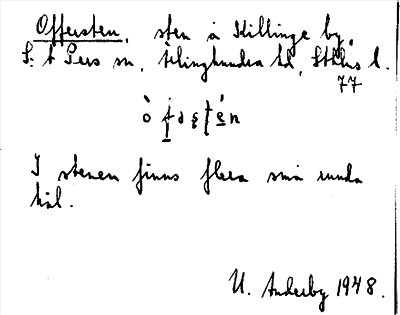 Offersten, sten å Killinge by,
S:t Pers sn, Ärlinghundra hd, Sthlms l.
77
ò f a s t é n
I stenen finns flera små runda
hål.
U. Anderby 1948.